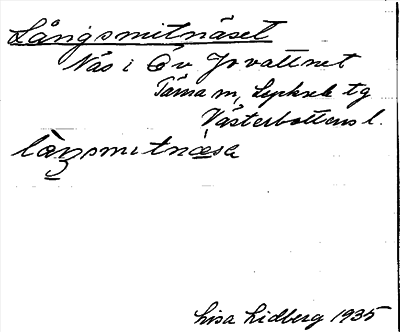 Långsmitnäset
Näs i Öv Jovattnet
Tärna m, Lycksele tg
Västerbottens l.
låŋsmɩtnæsa
Lisa Lidberg 1935